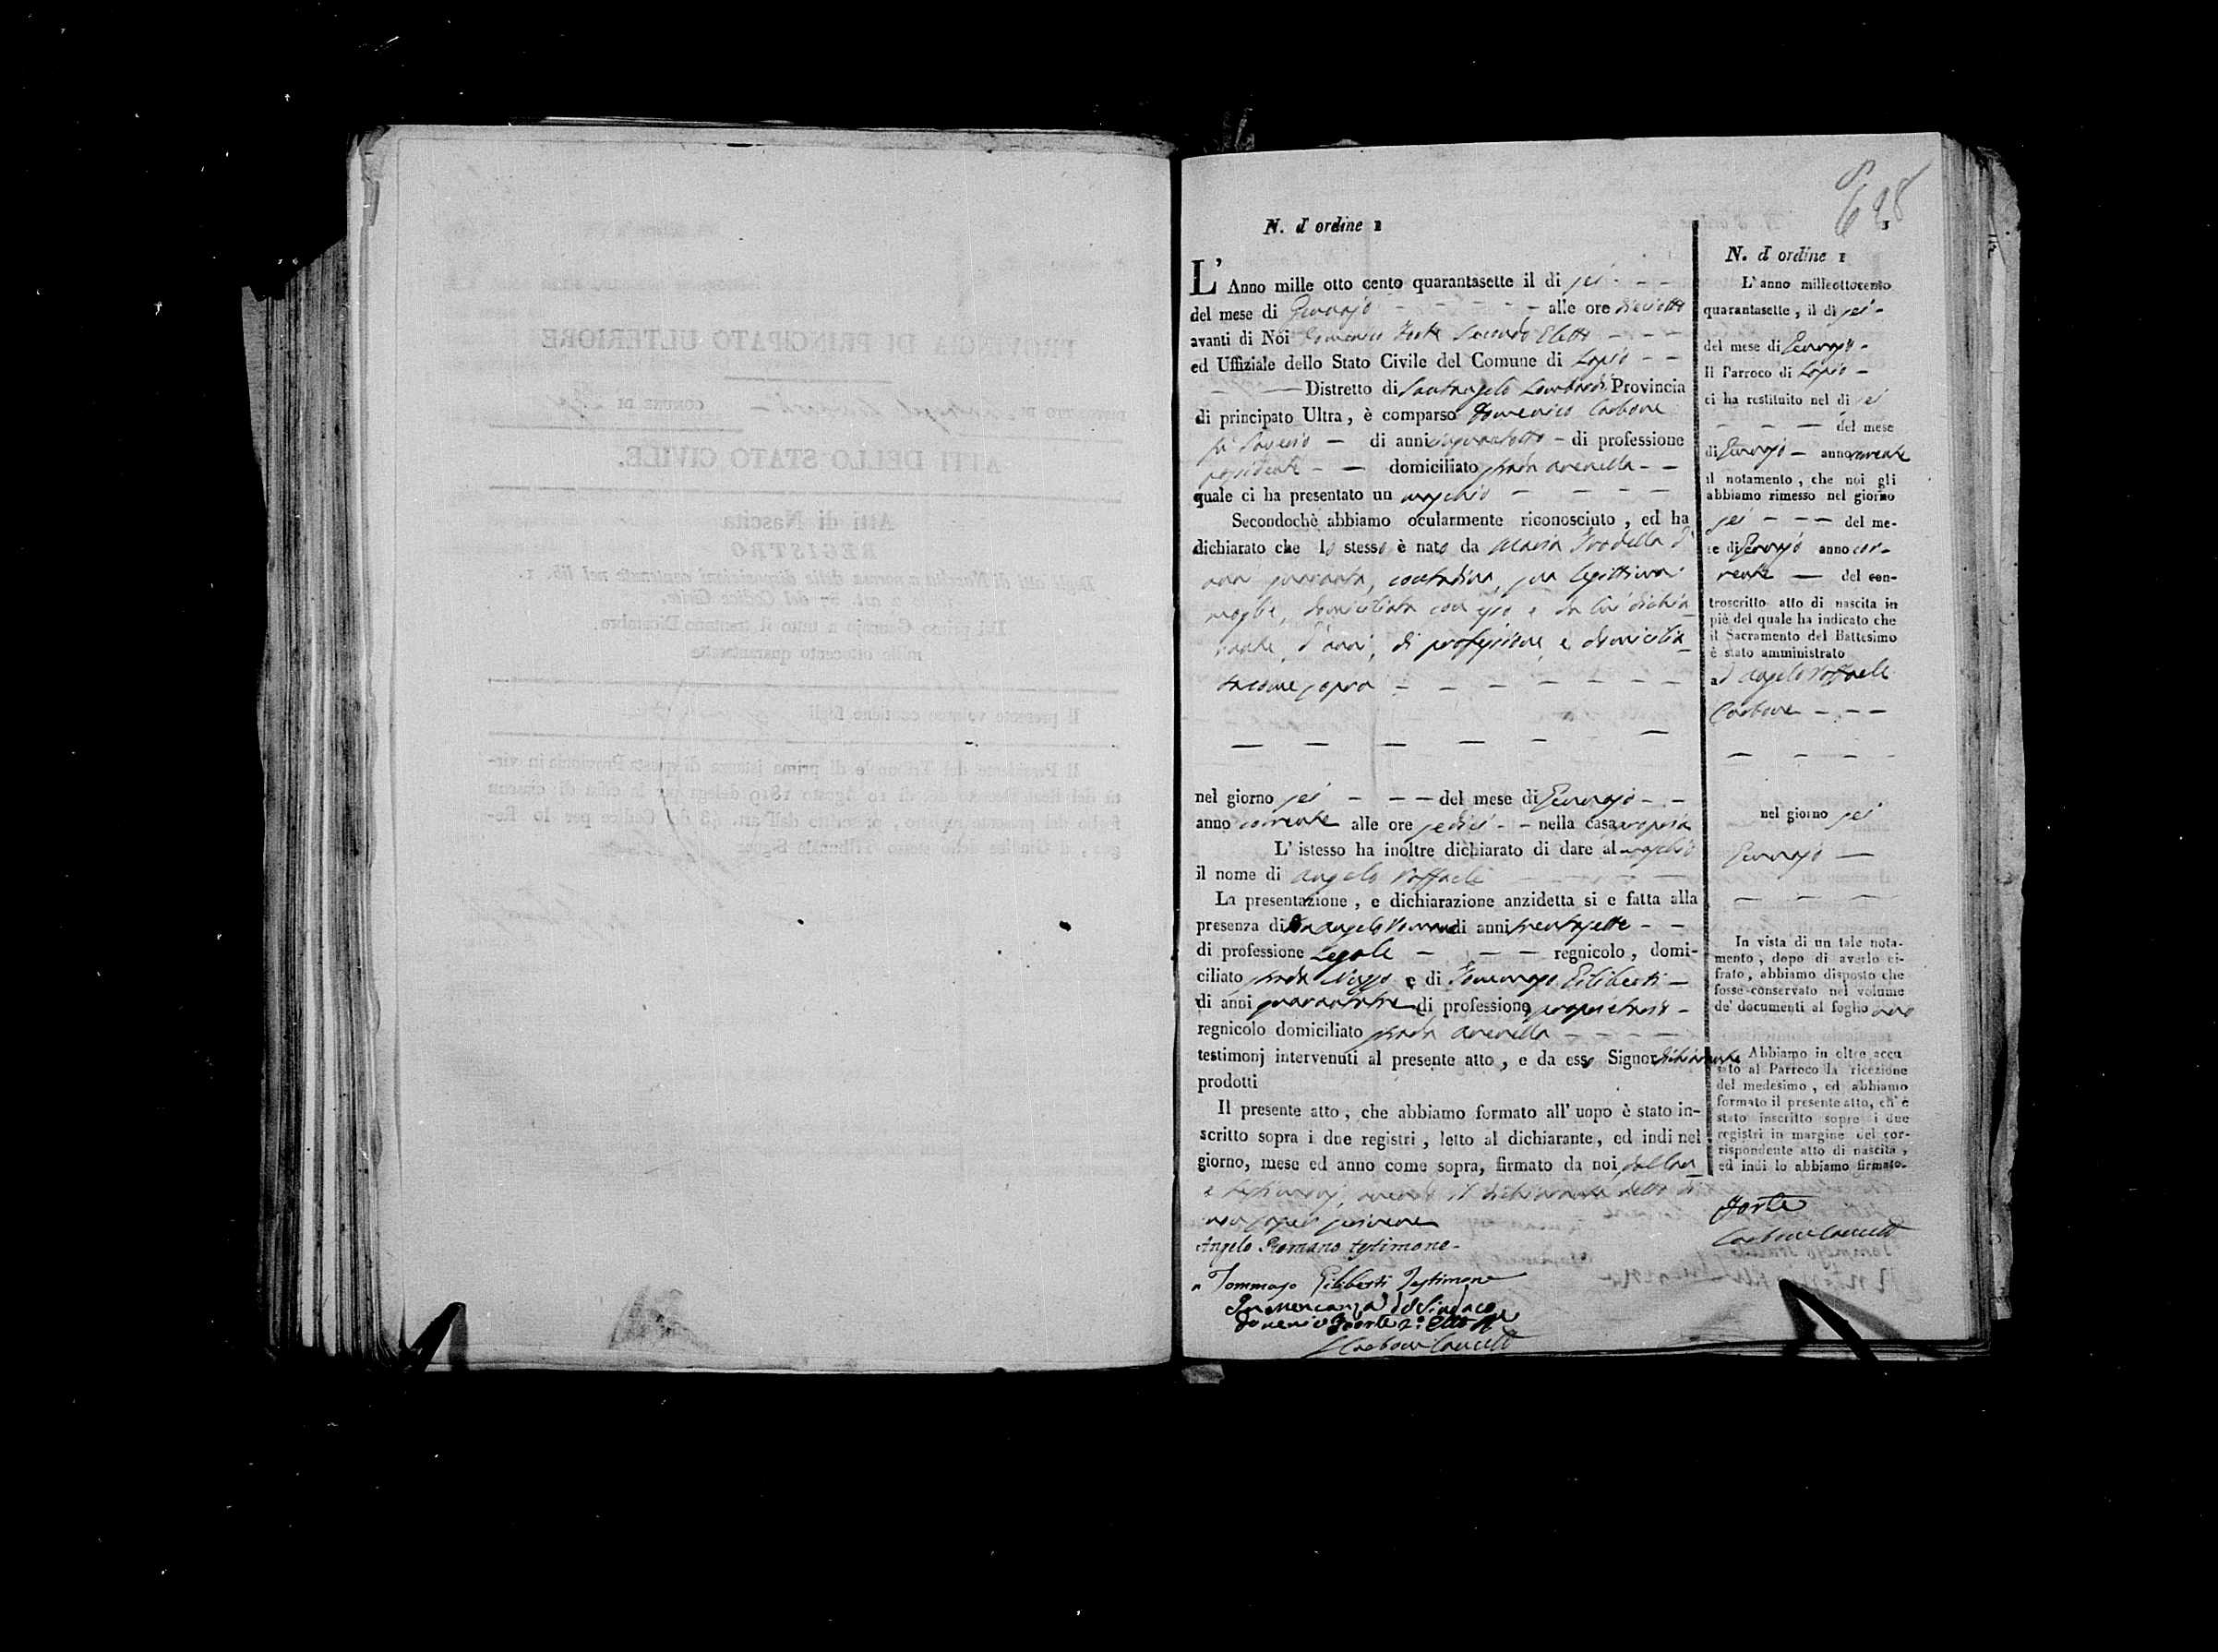 698
N. d'ordine 1
L'Anno mille otto cento quarantasette il di sei
del mese di Gennajo alle ore dieciotto
avanti di Noi Domenico Forte Secondo Eletto
ed Uffiziale dello Stato Civile del Comune di Lapio
Distretto di Santangelo Lombardi Provincia
di principato Ultra, è comparso Domenico Carbone
fu Saverio di anni cinquantotto di professione
domiciliato strada arenella
quale ci ha presentato un maschio
Secondochè abbiamo ocularmente riconosciuto, ed ha
dichiarato che lo stesso è nato da Maria
anni quaranta, contadina, sua legittima
moglie, domiciliata con esso e da lui dichia-
rante, d'anni, di professione, e domicilia-
ta come sopra
nel giorno sei del mese di Gennajo
anno corrente alle ore sedici nella casa propria
L'istesso ha inoltre dichiarato di dare al maschio
il nome di Angelo Raffaele
La presentazione, e dichiarazione anzidetta si e fatta alla
presenza di Angelo Romano di anni trentasette
di professione Legale regnicolo, domi-
ciliato strada e di Tommaso Giliberti
di anni quarantatre di professione proprietario
regnicolo domiciliato strada arenella
testimonj intervenuti al presente atto, e da esso Signor dichiarante
prodotti
Il presente atto, che abbiamo formato all'uopo è stato in-
scritto sopra i due registri, letto al dichiarante, ed indi nel
giorno, mese ed anno come sopra, firmato da noi
e testimonj, avendo il dichiarante detto di
non saper scrivere
Angelo Romano testimone
Tommaso Giliberti Testimone
In mancanza del Sindaco
Domenico Forte 2.º Eletto
Carbone
N. d'ordine 1
L'anno milleottocento
quarantasette, il di sei
del mese di Gennajo
Il Parroco di Lapio
ci ha restituito nel di sei
del mese
di Gennajo anno corrente
il notamento, che noi gli
abbiamo rimesso nel giorno
sei del me-
se di Gennajo anno cor-
rente del con-
troscritto atto di nascita in
piè del quale ha indicato che
il Sacramento del Battesimo
è stato amministrato
ad Angelo Raffaele
Carbone
nel giorno sei
Gennajo
In vista di un tale nota-
mento, dopo di averlo ci-
frato, abbiamo disposto che
fosse conservato nel volume
de' documenti al foglio uno
Abbiamo in oltre accu
sato al Parroco la ricezione
del medesimo, ed abbiamo
formato il presente atto, ch'è
stato inscritto sopra i due
registri in margine del cor-
rispondente atto di nascita,
ed indi lo abbiamo firmato.
Forte
Carbone